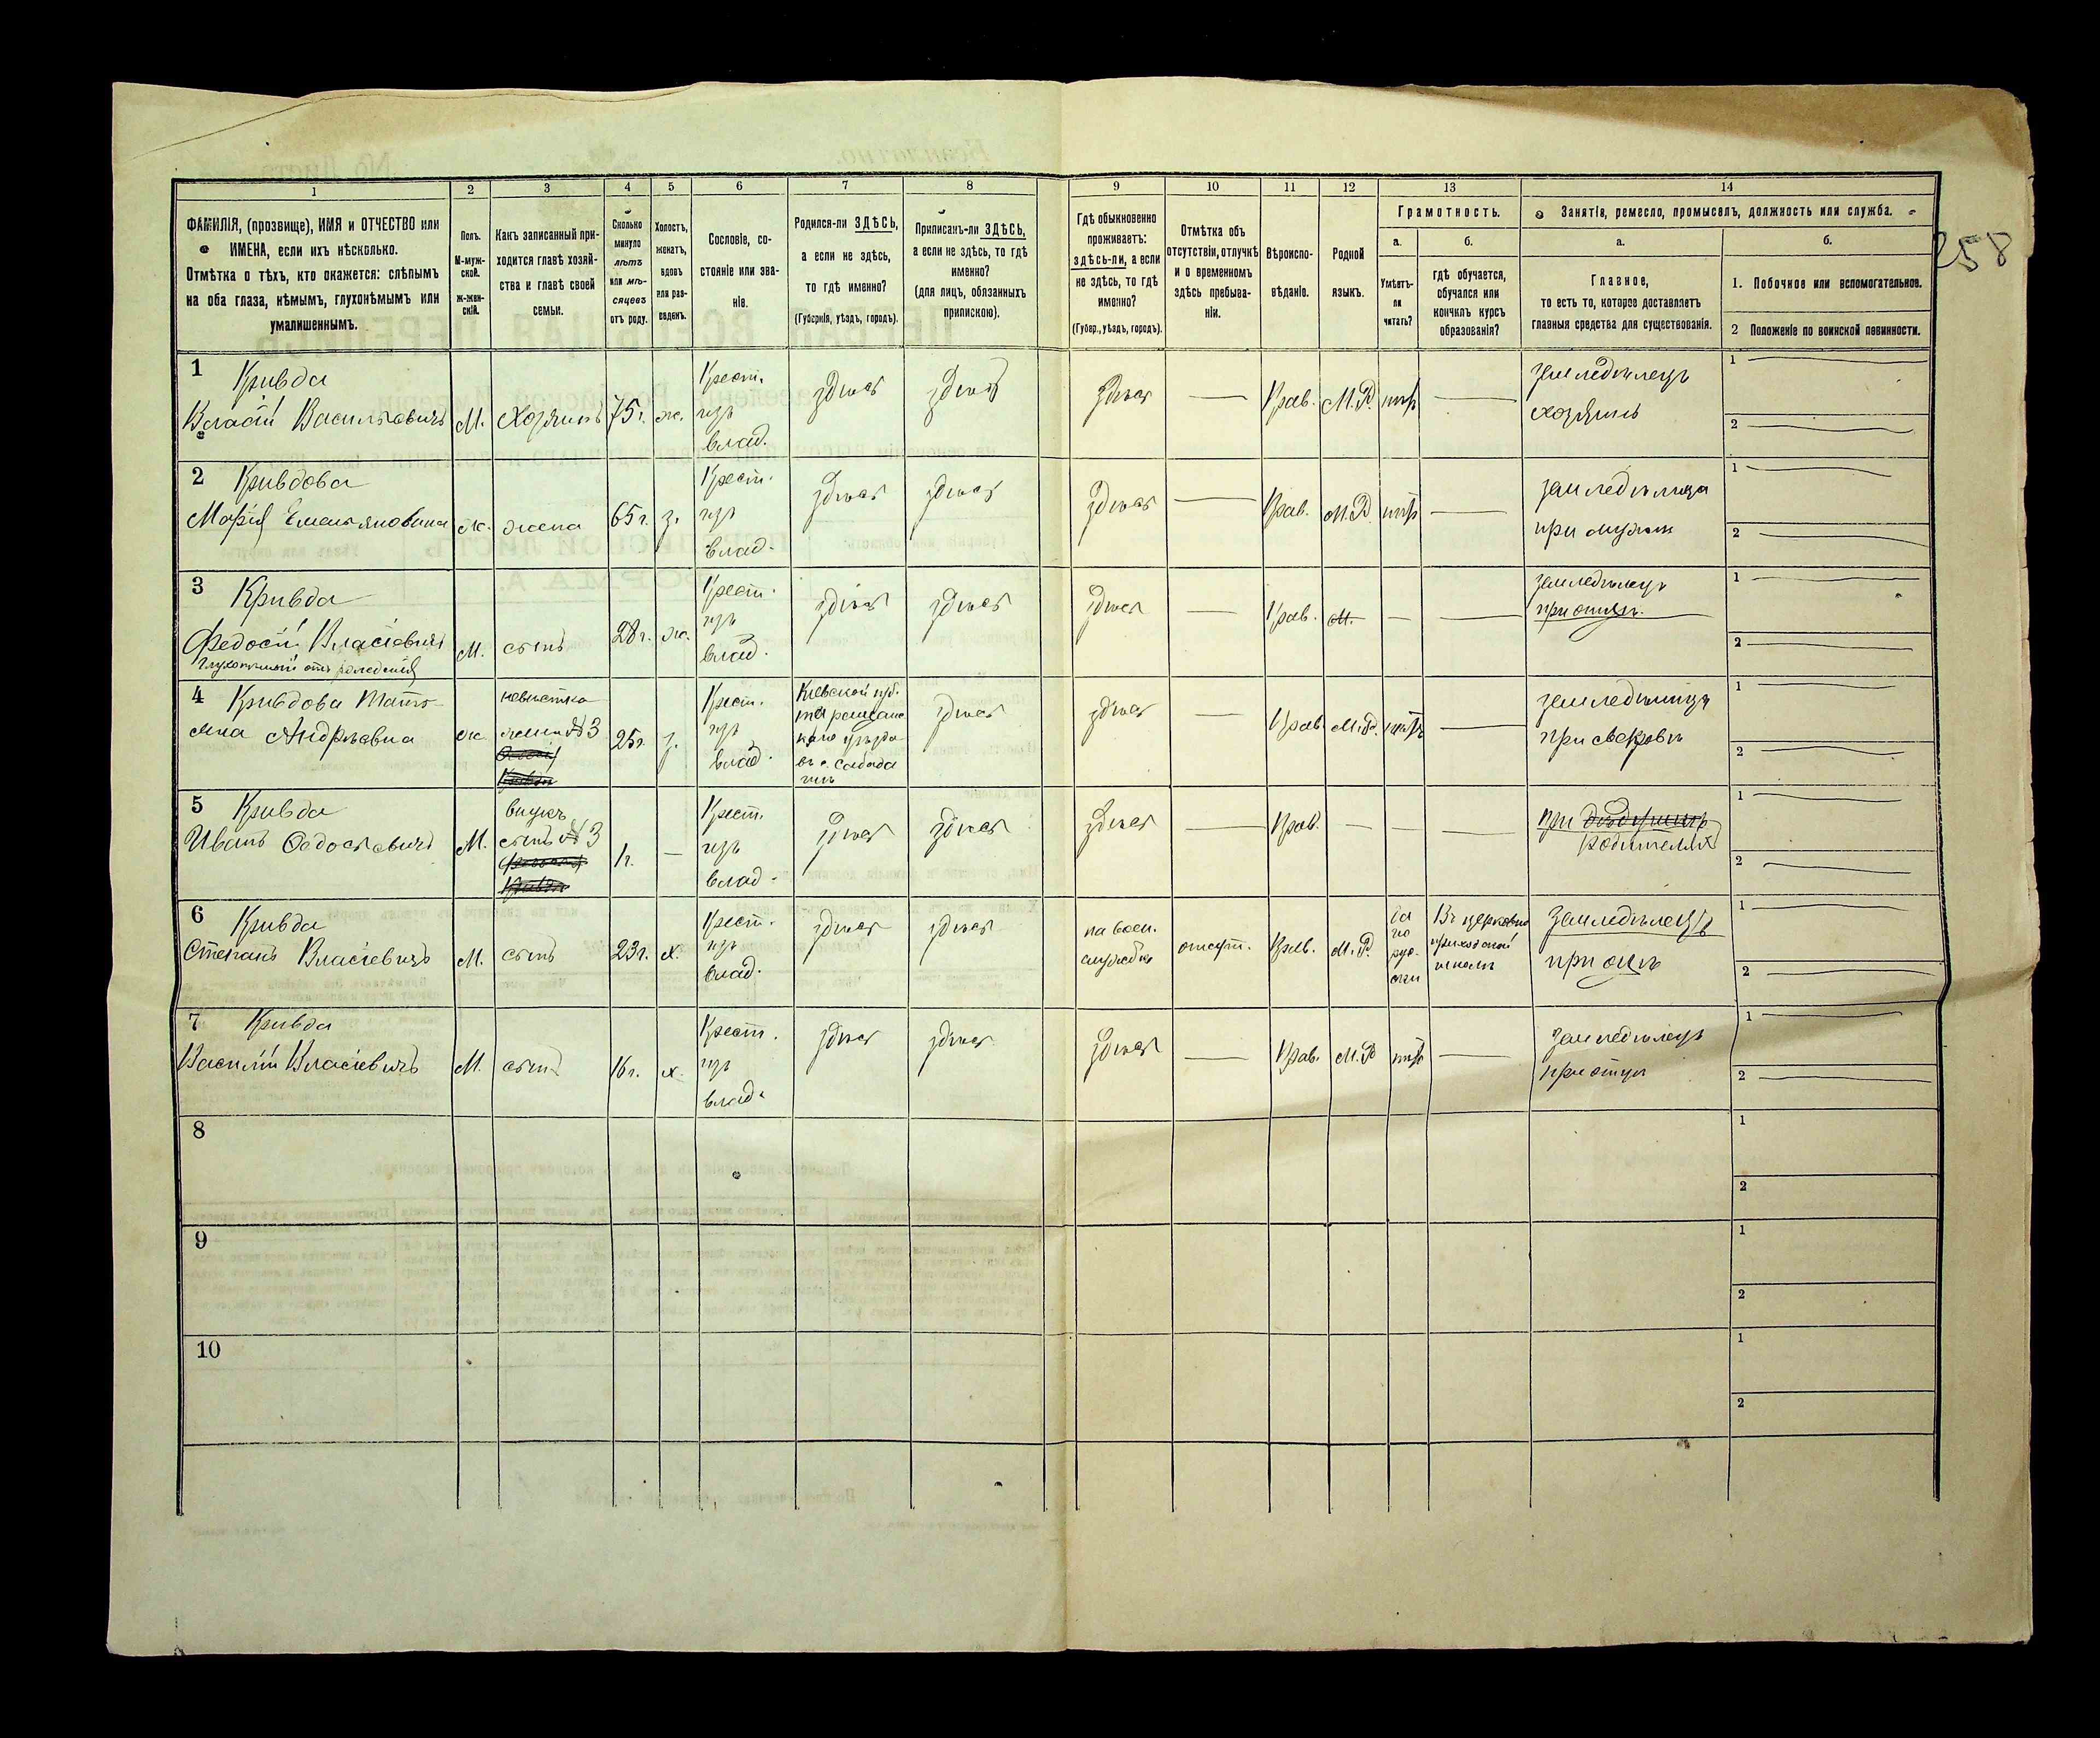 258
1 2 3 4 5 6 7 8 9 10 11 12 13 14
ФАМИЛІЯ, (прозвище), ИМЯ и ОТЧЕСТВО или
ИМЕНА, если ихъ нѣсколько.
Отмѣтка о тѣхъ, кто окажется: слѣпымъ
на оба глаза, нѣмымъ, глухонѣмымъ или
умалишеннымъ.
Полъ.
М-муж-
ской.
Ж-жен-
скій.
Какъ записанный при-
ходится главѣ хозяй-
ства и главѣ своей
семьи.
Сколько
минуло
лѣтъ
или мѣ-
сяцевъ
отъ роду.
Холостъ,
женатъ,
вдовъ
или раз-
веденъ.
Сословіе, со-
стояніе или зва-
ніе.
Родился-ли ЗДѢСЬ,
а если не здѣсь,
то гдѣ именно?
(Губернія, уѣздъ, городъ).
Приписанъ-ли ЗДѢСЬ,
а если не здѣсь, то гдѣ
именно?
(для лицъ, обязанныхъ
припискою).
Гдѣ обыкновенно
проживаетъ:
здѣсь-ли, а если
не здѣсь, то гдѣ
именно?
(Губер., уѣздъ, городъ).
Отмѣтка объ
отсутствіи, отлучкѣ
и о временномъ
здѣсь пребыва-
ніи.
Вѣроиспо-
вѣданіе.
Родной
языкъ.
Грамотность.
а.
Умѣетъ-
ли
читать?
б.
гдѣ обучается,
обучался или
кончилъ курсъ
образованія?
Занятія, ремесло, промыселъ, должность или служба.
а.
Главное,
то есть то, которое доставляетъ
главныя средства для существованія.
б.
1. Побочное или вспомогательное.
2 Положеніе по воинской повинности.
1 Кривда
Власій Васильевичъ М. Хозяинъ 75 г. ж. Крест.
изъ
влад. здѣсь здѣсь здѣсь — Прав. М.Р. нѣтъ — земледѣлецъ
хозяинъ
1 —
2 —
2 Кривдова
Марія Емельяновна ж. жена 65 г. з. Крест.
изъ
влад. здѣсь здѣсь здѣсь — Прав. М.Р. нѣтъ — земледѣлица
при мужѣ
1 —
2 —
3 Кривда
Федосій Власіевичъ
глухонѣмый отъ рожденія М. сынъ 28 г. ж. Крест.
изъ
влад. здѣсь здѣсь здѣсь — Прав. М. — — земледѣлецъ
при отцѣ.
1 —
2 —
4 Кривдова Матрё-
на Андрѣевна ж. невѣстка
жена № 3 25 г. з. Крест.
изъ
влад. Кіевской губ.
здѣсь здѣсь — Прав. М.Р. нѣтъ — земледѣлица
при свекровѣ
1 —
2 —
5 Кривда
Иванъ Ѳедосіевичъ М. внукъ
сынъ № 3 1 г. — Крест.
изъ
влад. здѣсь здѣсь здѣсь — Прав. — — — при
родителяхъ
1 —
2 —
6 Кривда
Степанъ Власіевичъ М. сынъ 23 г. х. Крест.
изъ
влад. здѣсь здѣсь на воен.
службѣ отсут. Прав. М.Р. да
по
рус-
ски Въ церковно
приходской
школѣ земледѣлецъ
при отцѣ
1 —
2 —
7 Кривда
Василій Власіевичъ М. сынъ 16 г. х. Крест.
изъ
влад. здѣсь здѣсь здѣсь — Прав. М.Р. нѣтъ — земледѣлецъ
при отцѣ
1 —
2 —
8
1
2
9
1
2
10
1
2